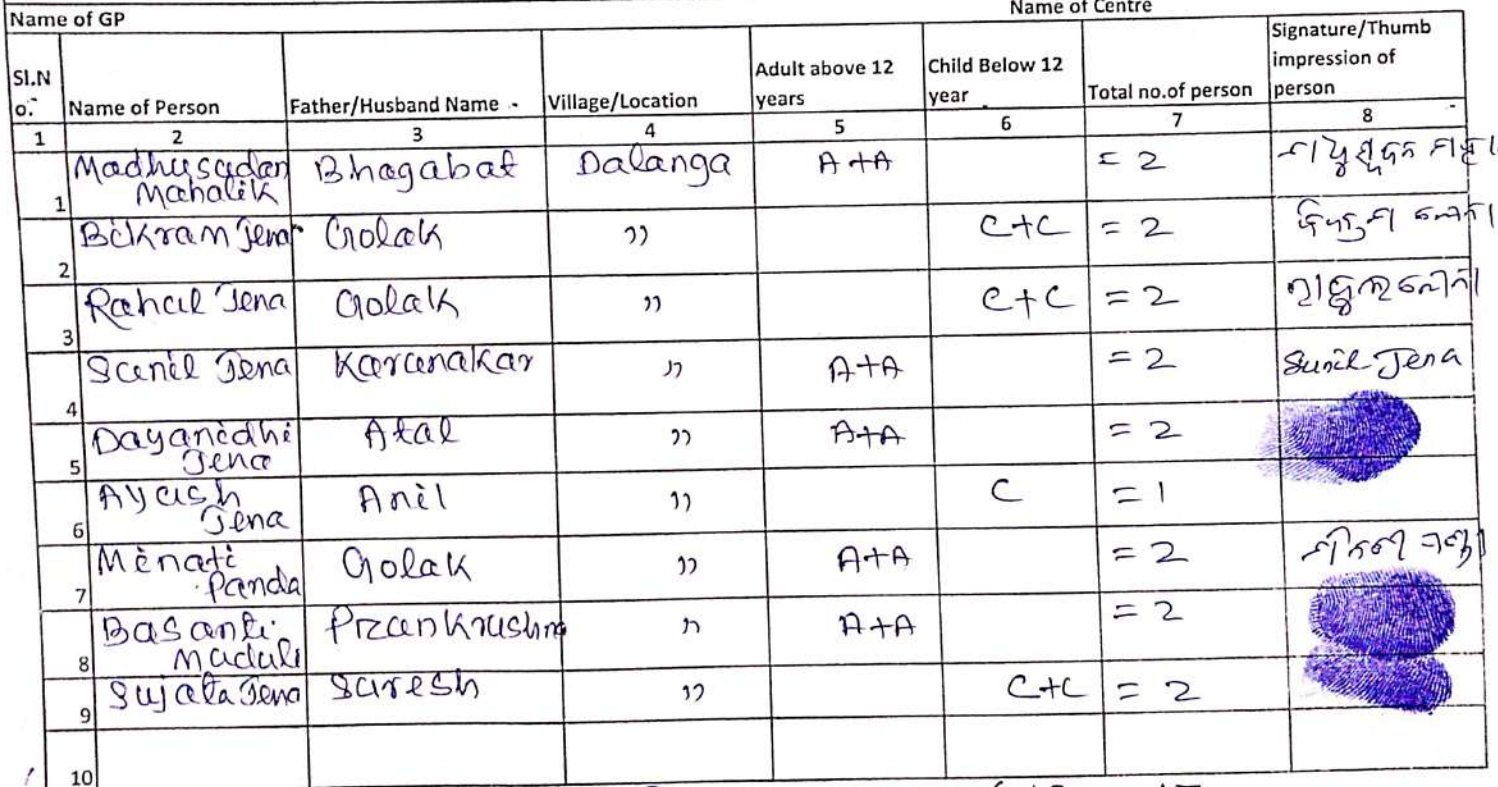 Name of GP Name of Centre
Sl.No. Name of Person Father/Husband Name Village/Location Adult above 12 years Child Below 12 year Total no.of person Signature/Thumb impression of person
1 2 3 4 5 6 7 8
1 Madhusudan Mahalik Bhagabat Dalanga A+A = 2 ମାଧୁସୂଦନ
2 Bikram Jena Golak " C+C = 2 ବିକ୍ରମ ଜେନା
3 Rahul Jena Golak " C+C = 2 ରାହୁଲ ଜେନା
4 Sunil Jena Karunakar " A+A = 2 Sunil Jena
5 Dayanidhi Jena Atal " A+A = 2
6 Ayush Jena Anil " C = 1
7 Minati Panda Golak " A+A = 2
8 Basanti Maduli Prankrushna " A+A = 2
9 Sujata Jena Suresh " C+C = 2
10